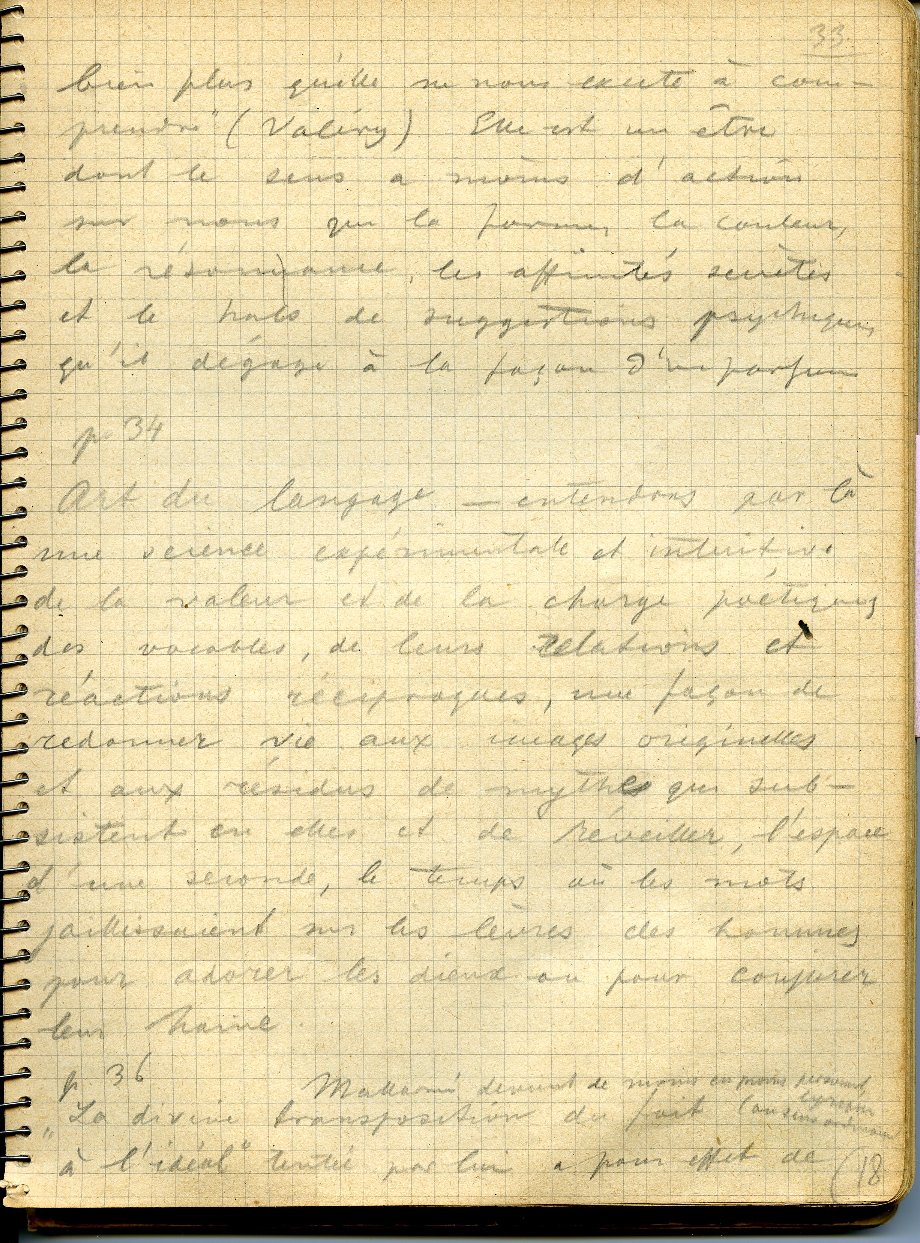 33.
bien plus qu'elle ne nous excite à com-
prendre" (Valéry) Elle est un être
dont le sens a moins d'action
sur nous que la forme, la couleur,
la résonnance, les affinités secrètes
et le halo de suggestions psychiques
qu'il dégage à la façon d'un parfum
p 34
Art du langage – entendons par là
une science expérimentale et intuitive
de la valeur et de la charge poétiques
des vocables, de leurs relations et
réactions réciproques, une façon de
redonner vie aux images originelles
et aux résidus de mythes qui sub-
sistent en elles et de réveiller, l'espace
d'une seconde, le temps où les mots
jaillissaient sur les lèvres des hommes
pour adorer les dieux ou pour conjurer
leur haine
p 36
Mallarmé devient de moins en moins
"La divine transposition du fait (au sens
à l'idéal" tentée par lui a pour effet de
(18